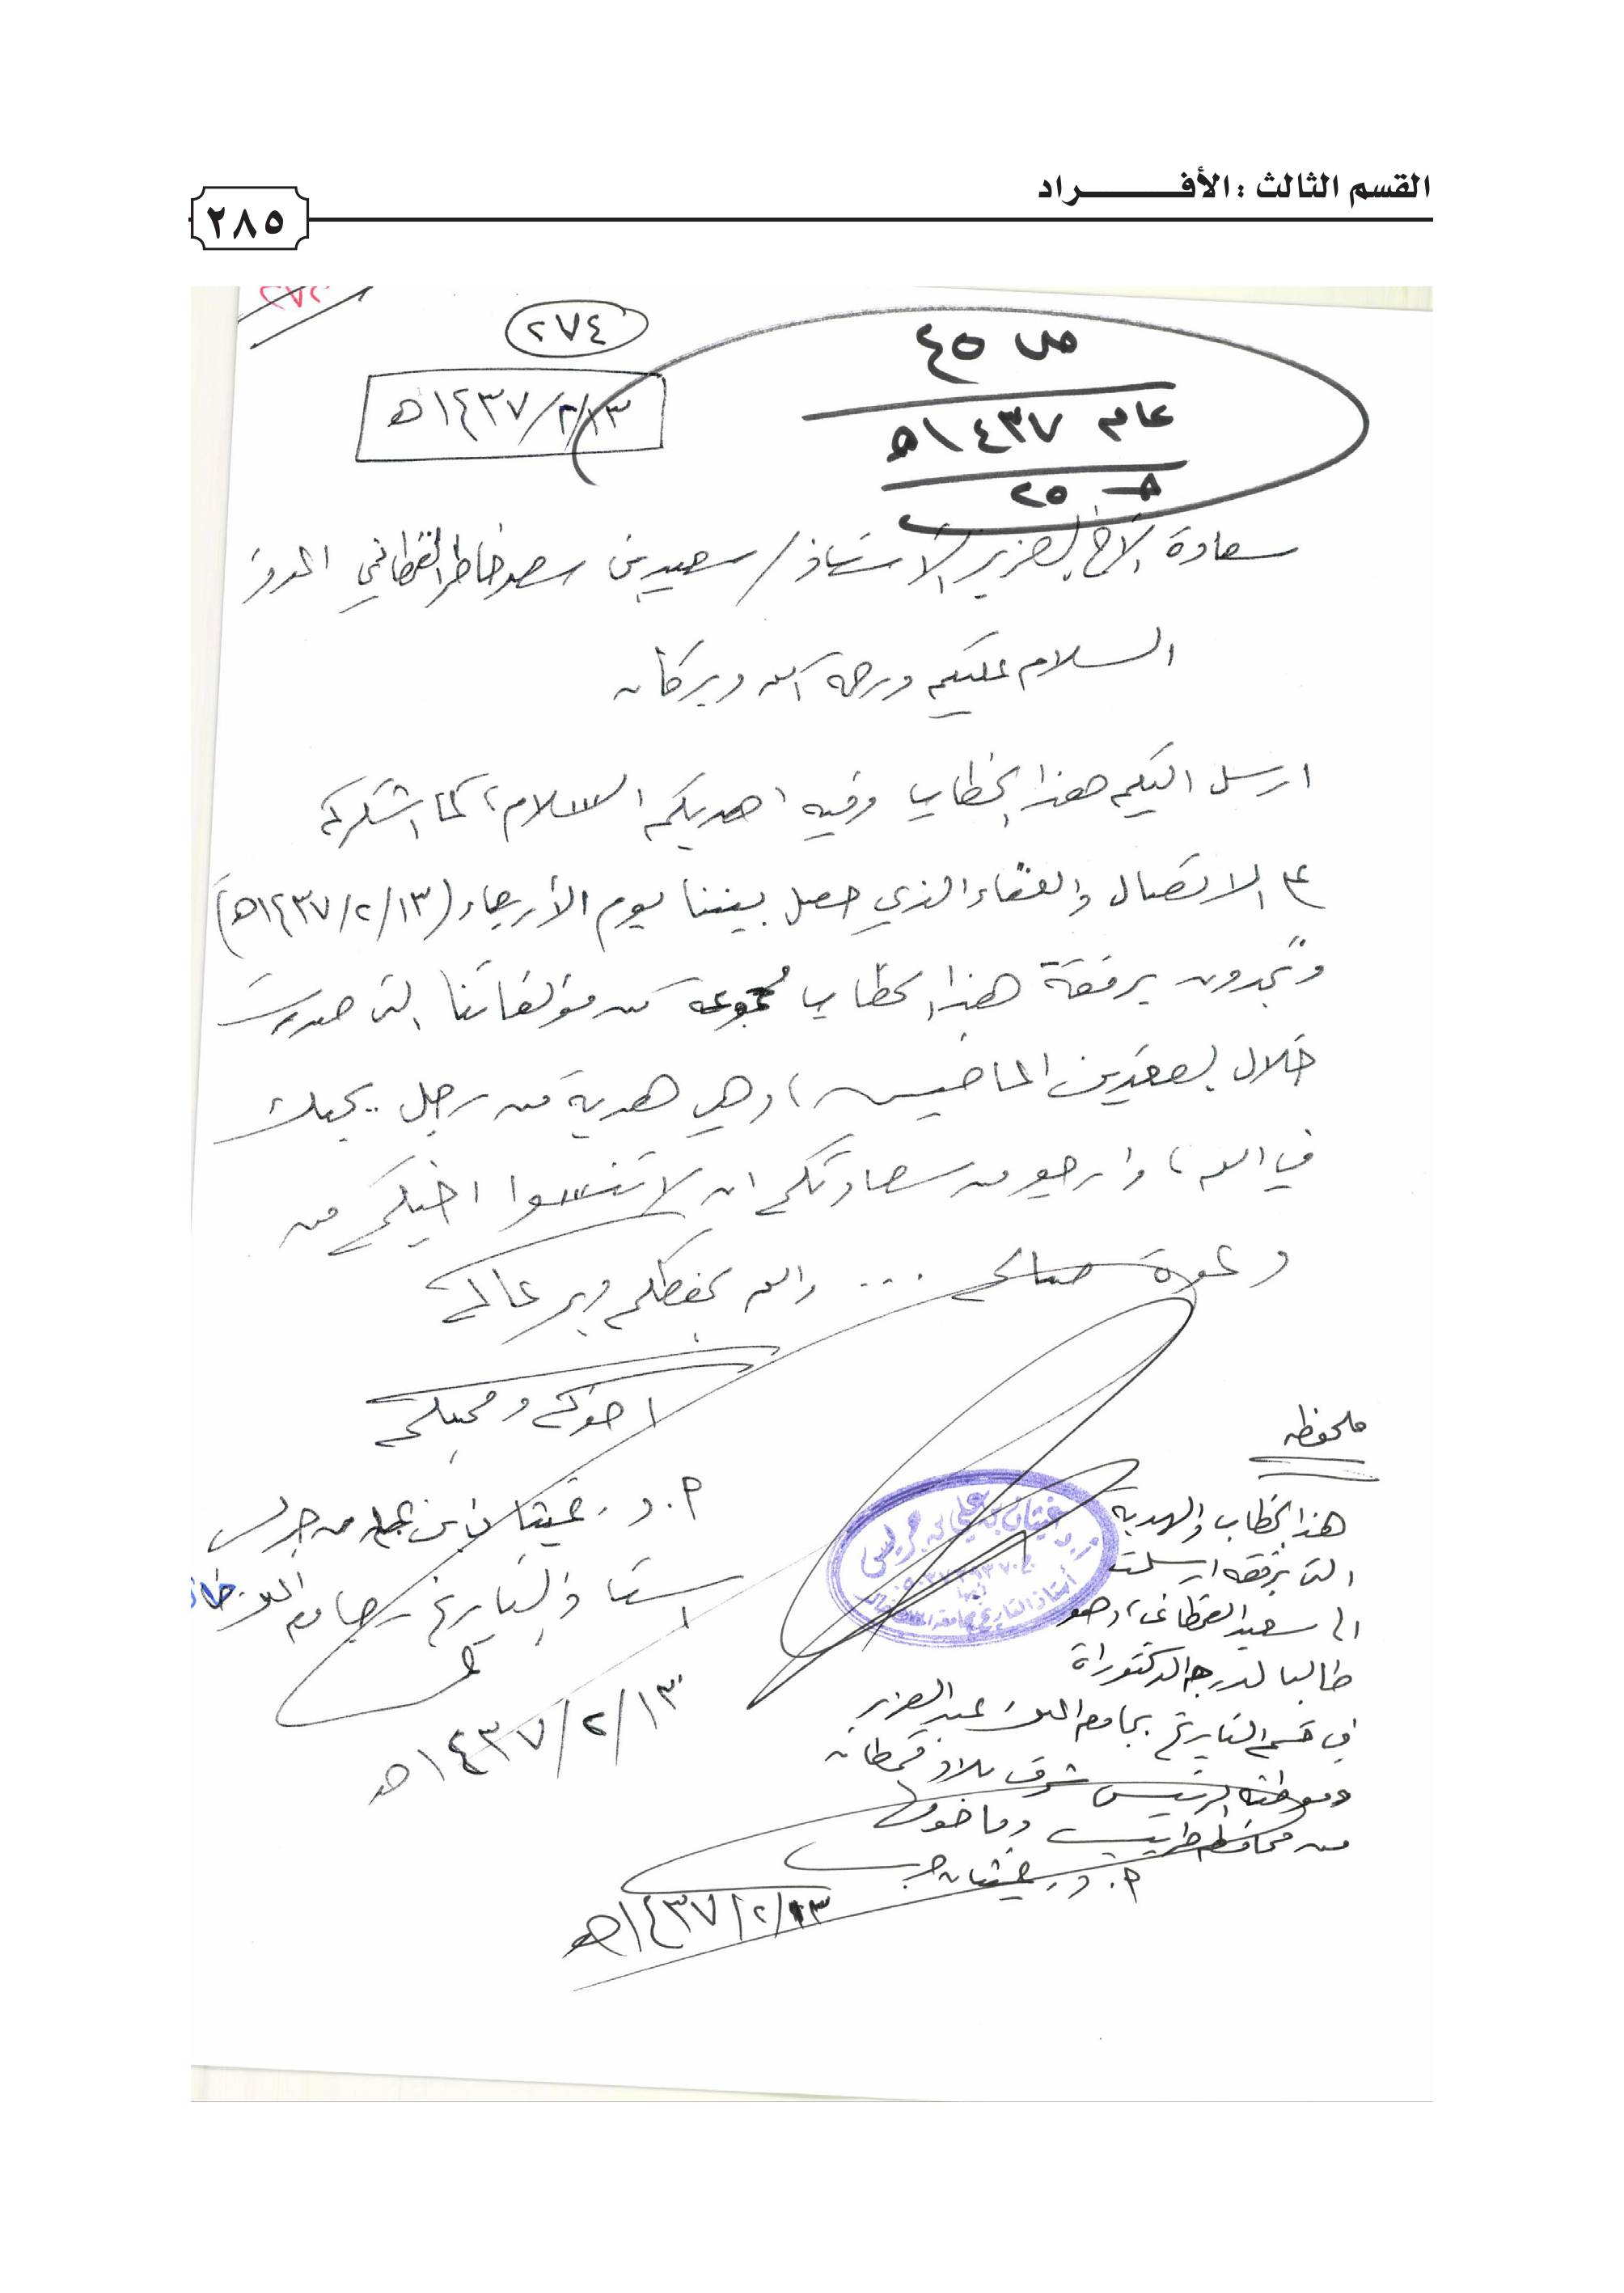 القسم الثالث : الأفـــــــــراد
٢٨٥
٢٧٤
ص ٤٥
عام ١٤٣٧هـ
٢٥
١٤٣٧/٢/١٣هـ
سعادة الأخ العزيز الاستاذ / سعيد بن سعد خاطر القحطاني الموقر
السلام عليكم ورحمة الله وبركاته
ارسل اليكم هذا الخطاب وفيه اهديكم السلام، كما اشكركم
على الاتصال واللقاء الذي حصل بيننا يوم الأربعاء (١٤٣٧/٢/١٣هـ)
وتجدون برفقة هذا الخطاب مجموعه من مؤلفاتنا التي صدرت
خلال العقدين الماضيين، وهي هدية من رجل يحبك
في الله، وارجو من سعادتكم ان لا تنسوا اخيكم من
دعوة صالحه ... والله يحفظكم ويرعاكم
اخوكم ومحبكم
أ.د. غيثان بن علي بن جريس
استاذ التاريخ بجامعة الملك خالد
١٤٣٧/٢/١٣هـ
ملحوظه
هذا الخطاب والهدية
التي برفقه ارسلت
الى سعيد القحطاني، وهو
طالبا لدرجة الدكتوراة
في قسم التاريخ بجامعة الملك عبد العزيز
وموطنه الرئيس شرق بلاد قحطان
من محافظة طريب وما حولها
أ.د. غيثان جريس
١٤٣٧/٢/١٣هـ
أ.د. غيثان بن علي بن جريس
أستاذ التاريخ بجامعة الملك خالد
أبها